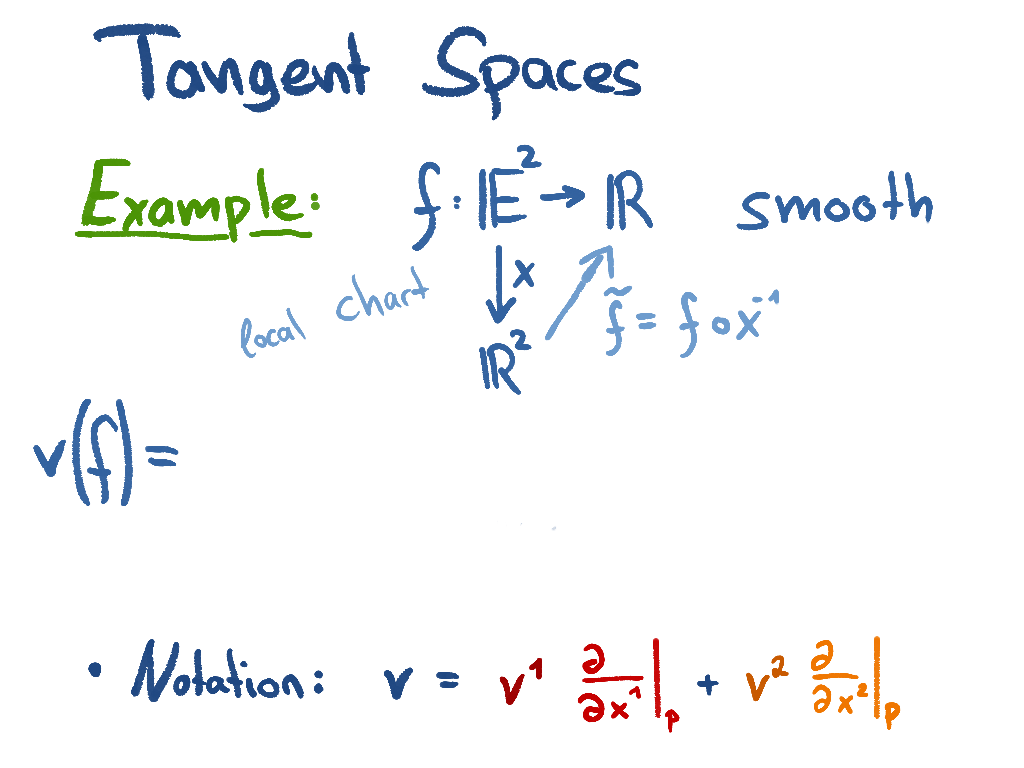 Tangent Spaces
Example: f: 𝔼² → ℝ smooth
local chart ↓ x ↗ f̃ = f ∘ x⁻¹
ℝ²
v(f) =
• Notation: v = v¹ ∂/∂x¹|ₚ + v² ∂/∂x²|ₚ